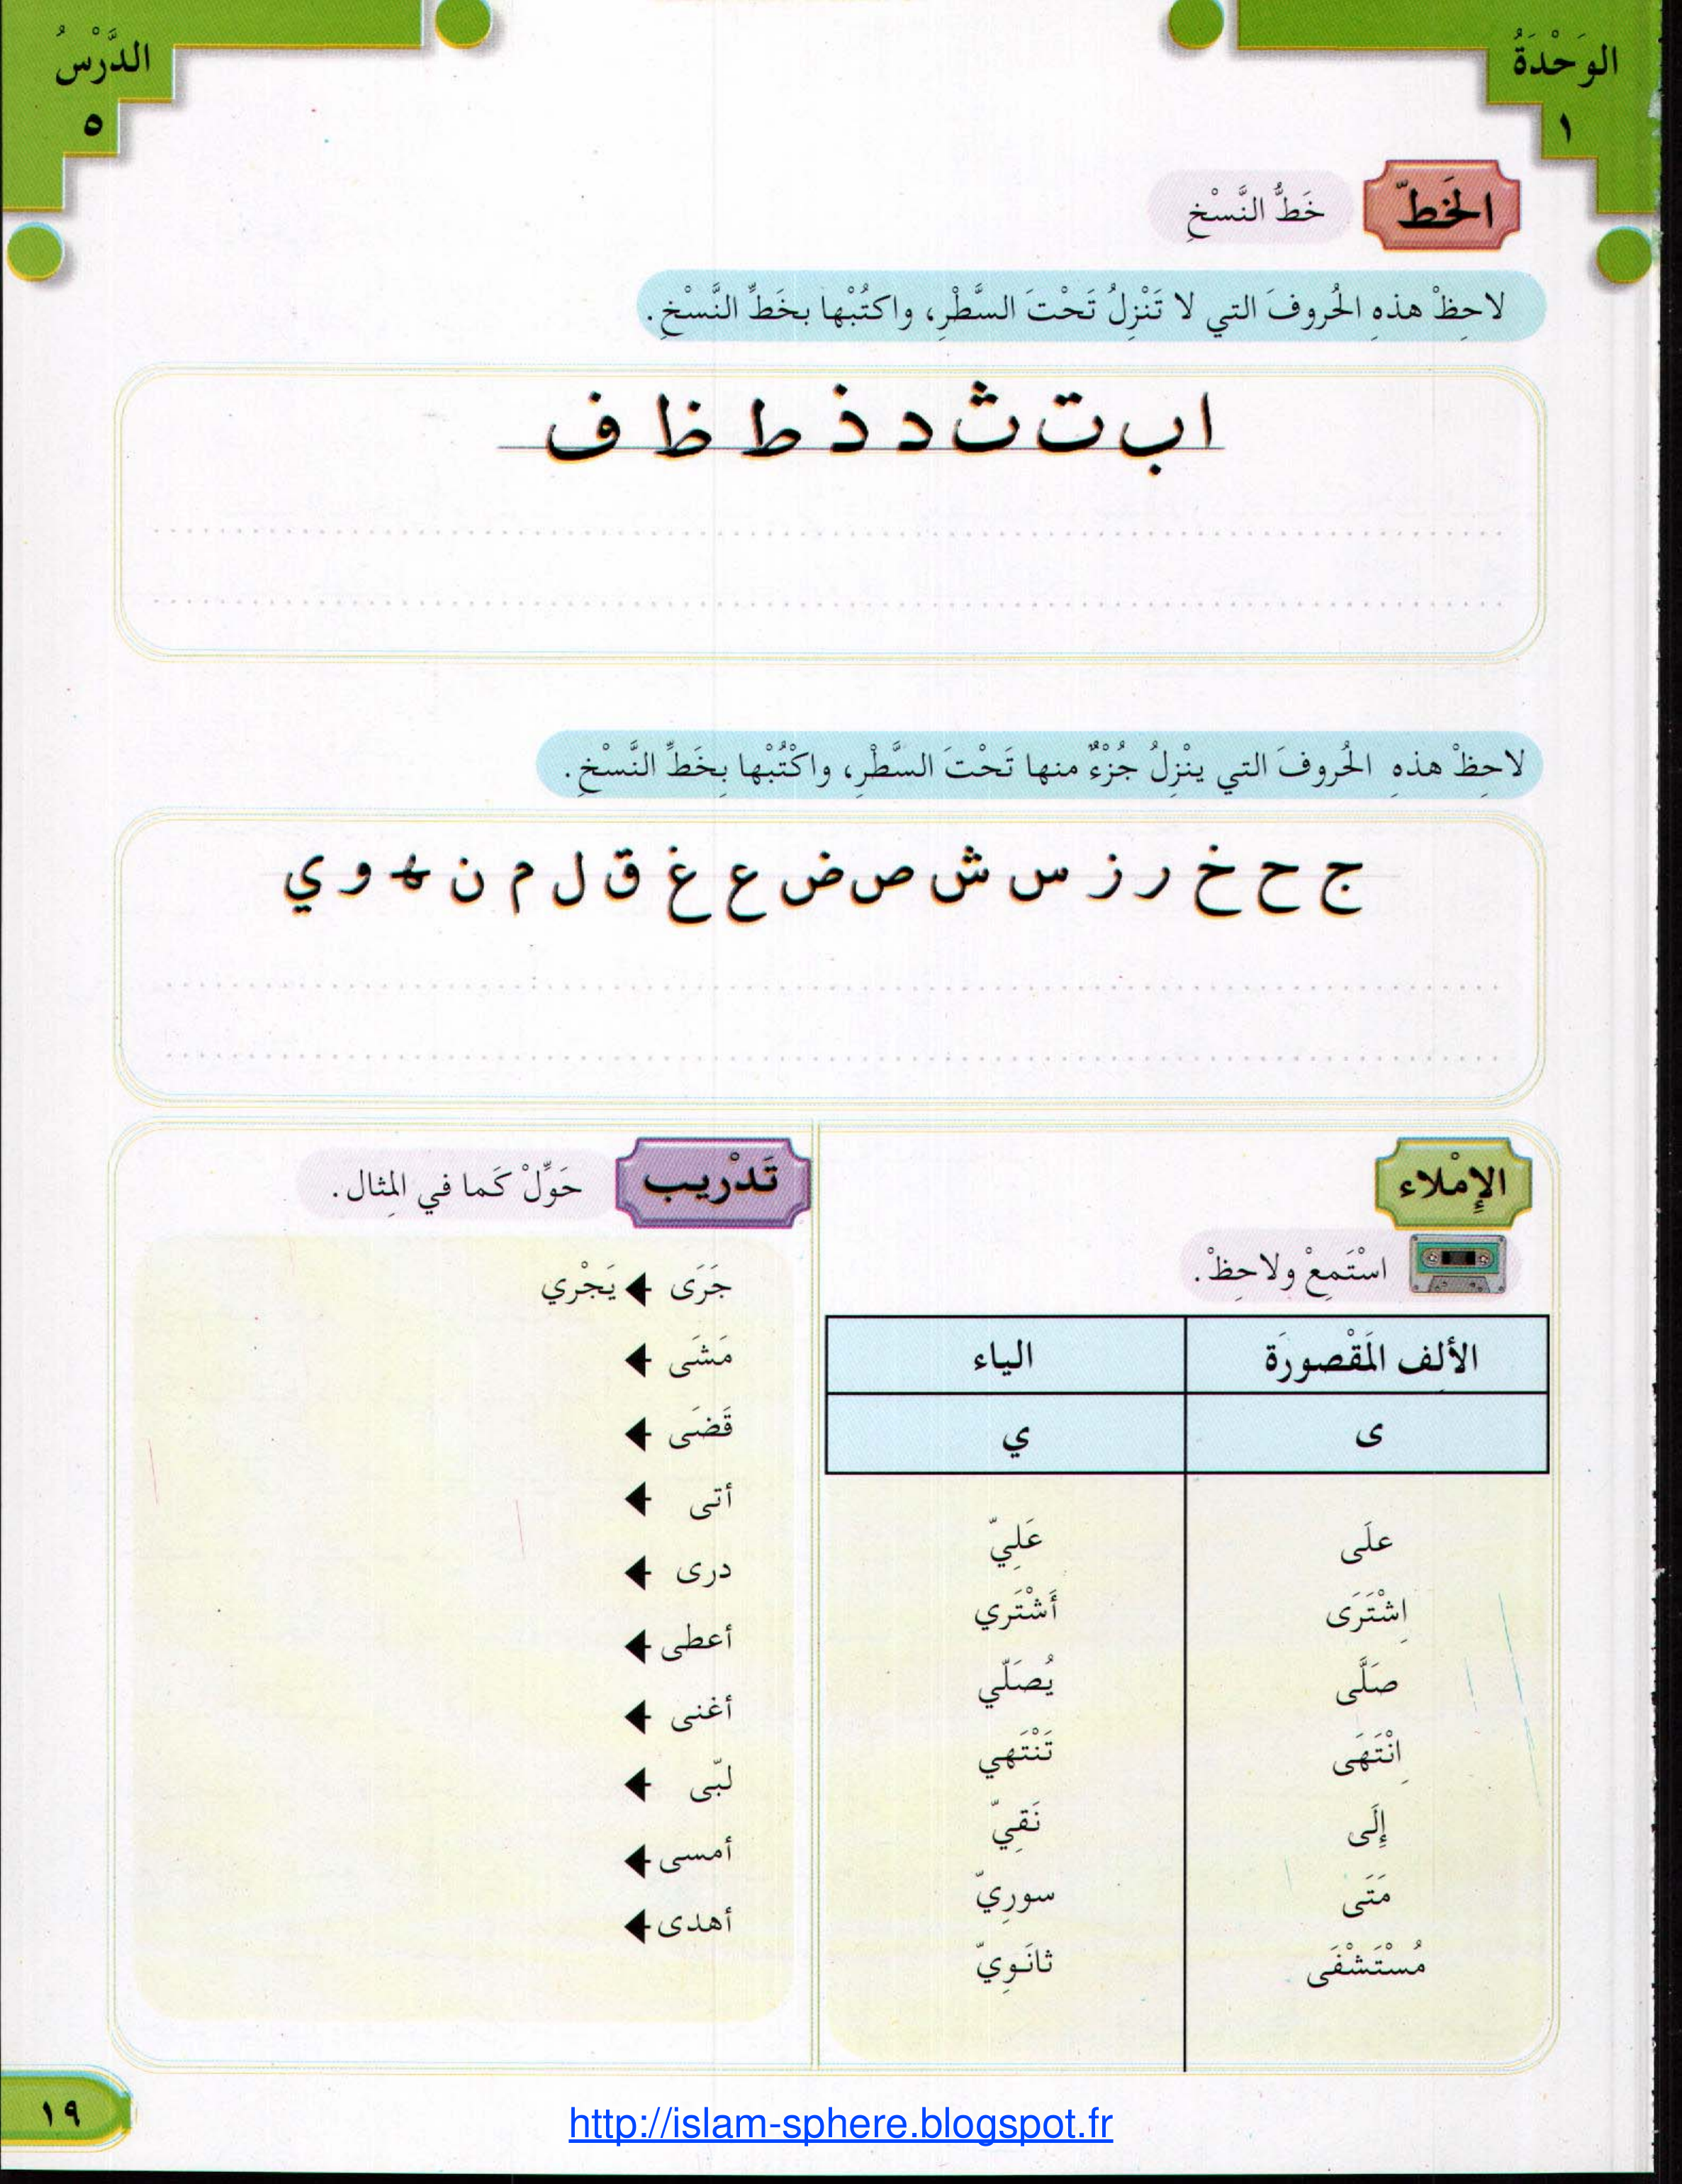 الوَحْدَةُ
١
الدَّرْسُ
٥
الخَطّ
خَطُّ النَّسْخِ
لاحِظْ هذهِ الحُروفَ التي لا تَنْزِلُ تَحْتَ السَّطْرِ، واكتُبْها بخَطِّ النَّسْخِ.
ا ب ت ث د ذ ط ظ ف
لاحِظْ هذهِ الحُروفَ التي ينْزِلُ جُزْءٌ منها تَحْتَ السَّطْرِ، واكْتُبْها بِخَطِّ النَّسْخِ.
ج ح خ ر ز س ش ص ض ع غ ق ل م ن ه و ي
الإمْلاء
اسْتَمِعْ ولاحِظْ.
الألِف المَقْصورَة الياء
ى ي
علَى عَلِيّ
اِشْتَرَى أَشْتَري
صَلَّى يُصَلّي
اِنْتَهَى تَنْتَهي
إِلَى نَقِيّ
مَتَى سورِيّ
مُسْتَشْفَى ثانَوِيّ
تَدْريب
حَوِّلْ كَما في المِثال.
جَرَى يَجْري
مَشَى
قَضَى
أتى
درى
أعطى
أغنى
لبّى
أمسى
أهدى
١٩
http://islam-sphere.blogspot.fr